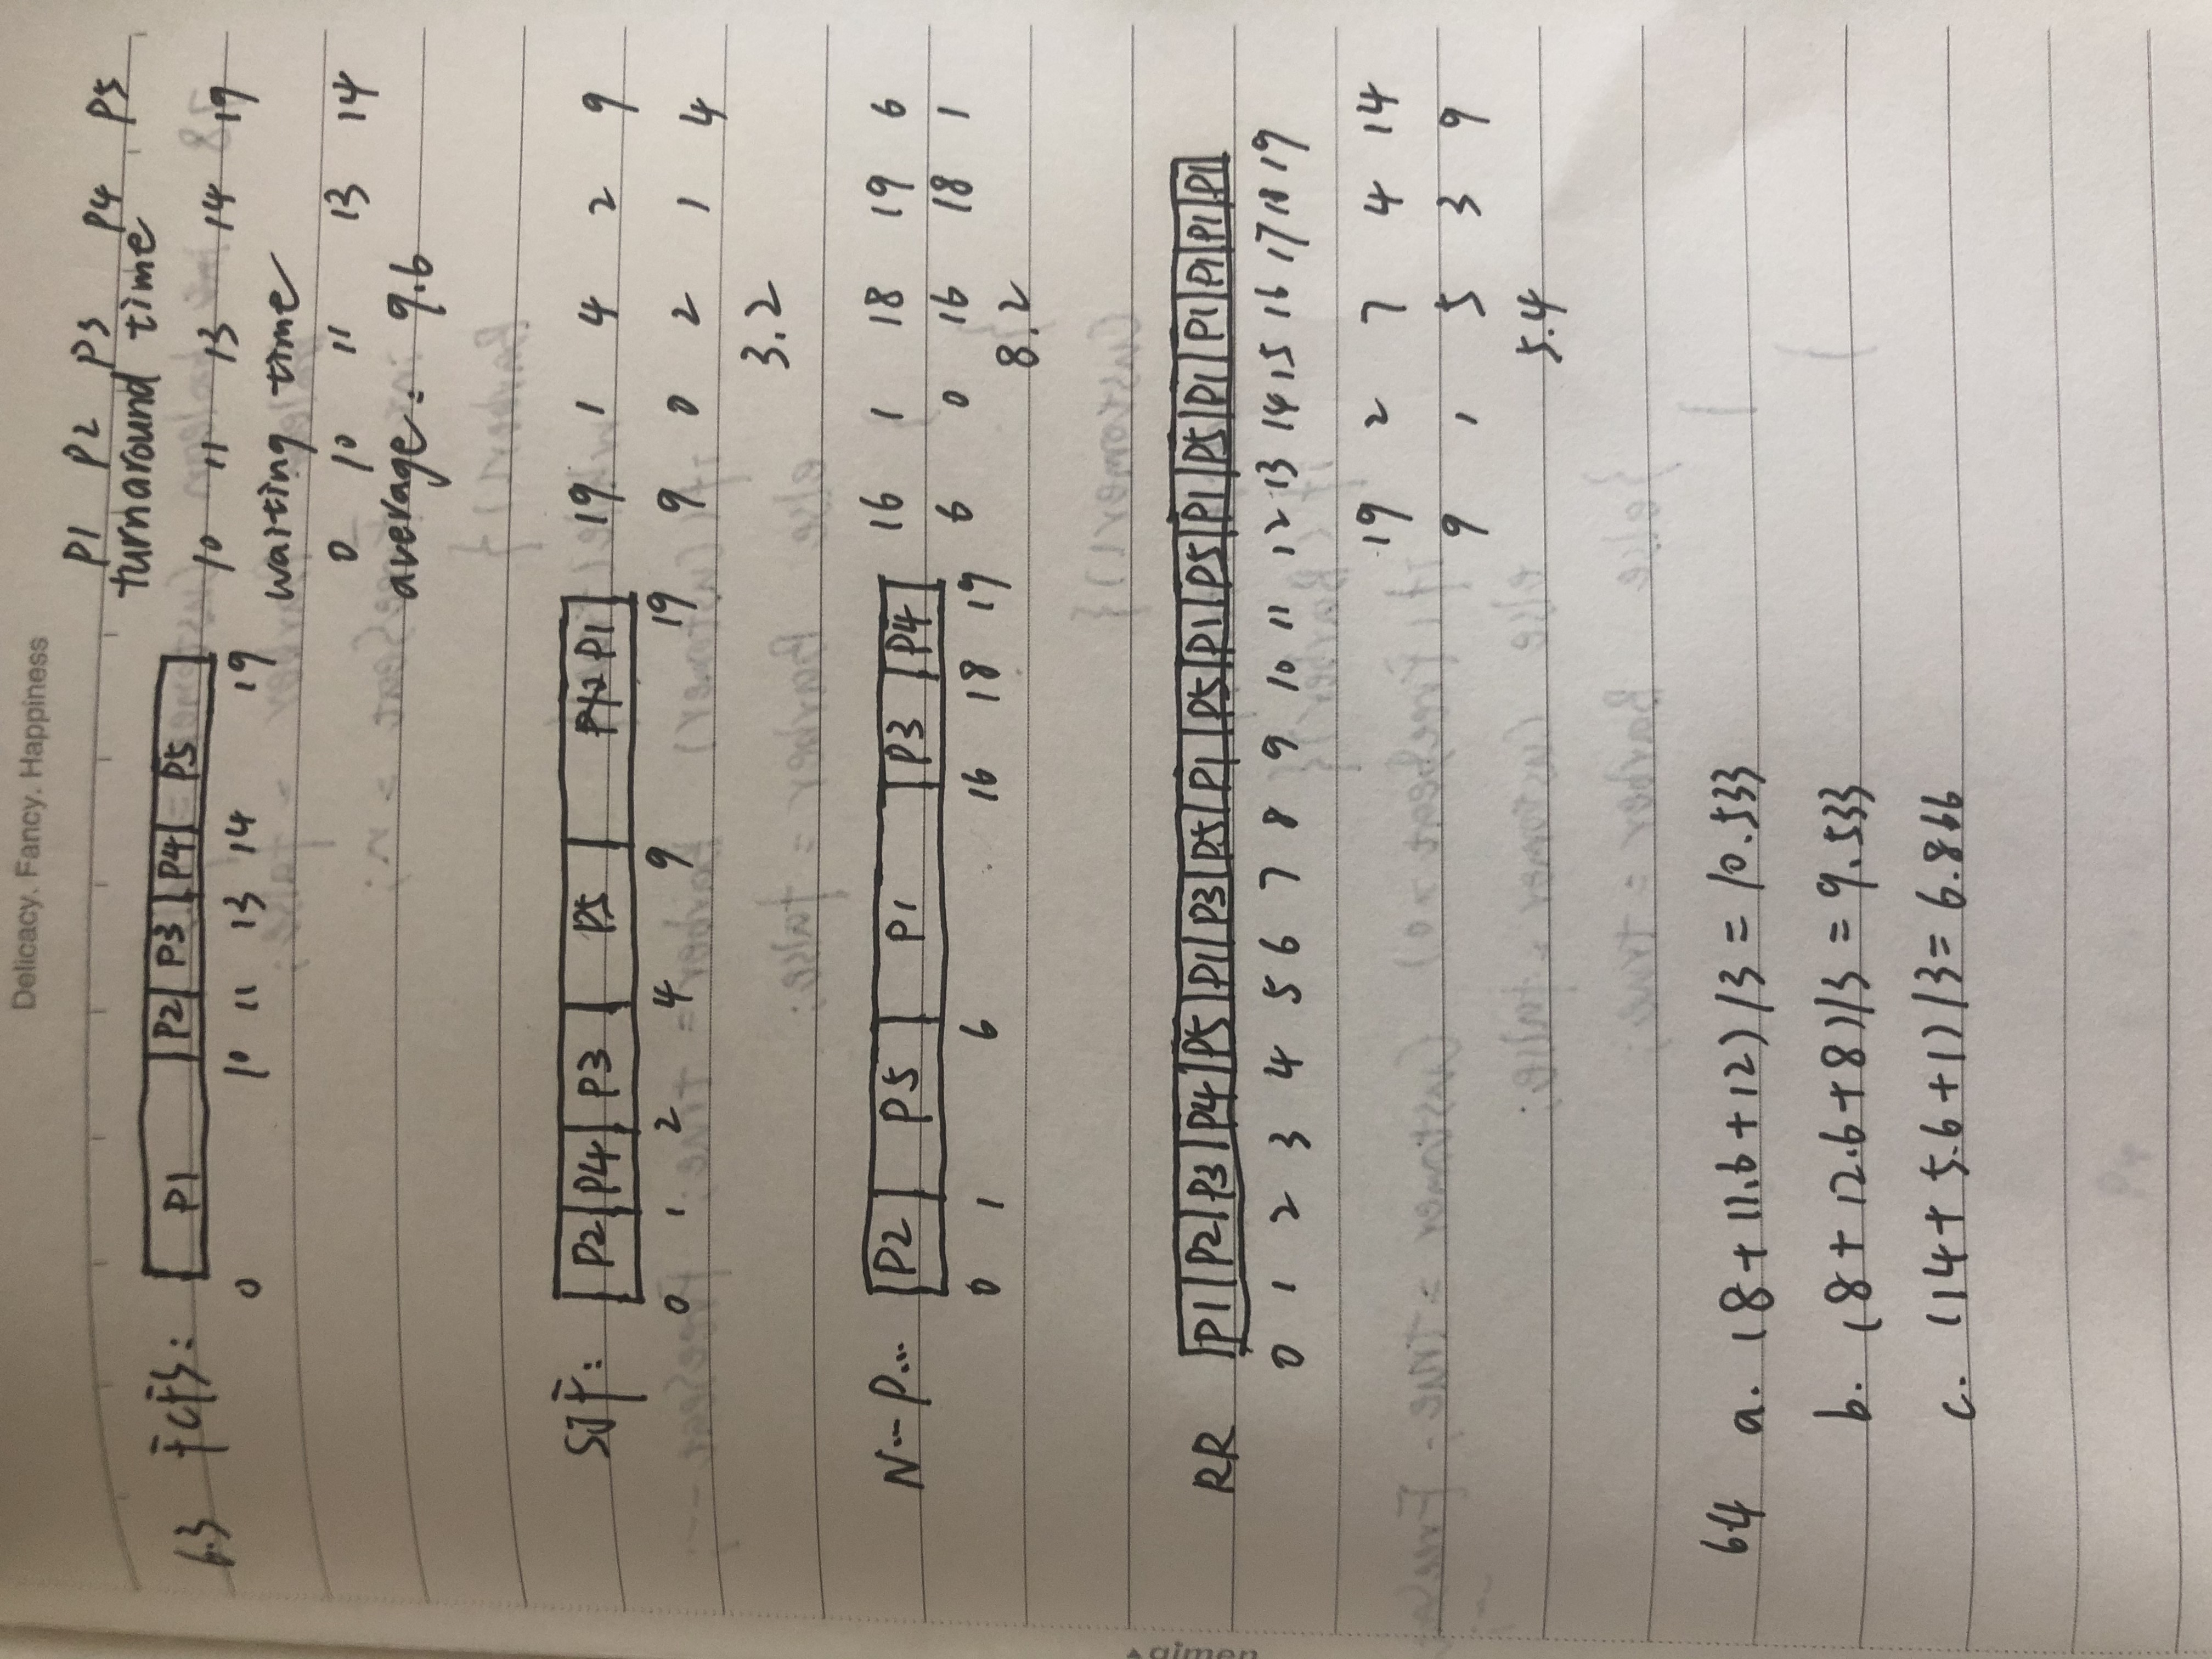 Delicacy. Fancy. Happiness
P1 P2 P3 P4 P5
turnaround time
6.3 FCFS: P1 P2 P3 P4 P5 10 11 13 14 19
0 10 11 13 14 19
waiting time
0 10 11 13 14
average: 9.6
SJF: P2 P4 P3 P5 P1 19 1 4 2 9
0 1 2 4 9 19 9 0 2 1 4
3.2
N... P... P2 P5 P1 P3 P4 16 1 18 19 6
0 1 6 16 18 19 6 0 16 18 1
8.2
RR P1 P2 P3 P4 P5 P1 P3 P5 P1 P5 P1 P5 P1 P5 P1 P1 P1 P1 P1
0 1 2 3 4 5 6 7 8 9 10 11 12 13 14 15 16 17 18 19
19 2 7 4 14
9 1 5 3 9
5.4
6.4 a. (8+11.6+12)/3 = 10.533
b. (8+12.6+8)/3 = 9.533
c. (14+5.6+1)/3 = 6.866